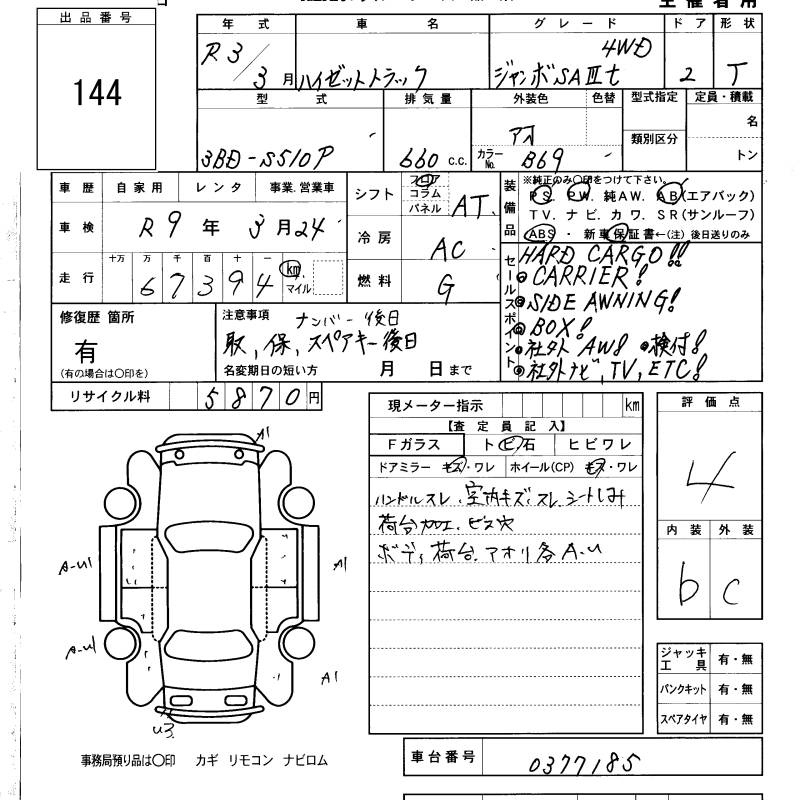 出品番号
144
年式 車名 グレード ドア 形状
R3/3月 ハイゼットトラック ジャンボSAⅢt 4WD 2 T
型式 排気量 外装色 色替 型式指定 定員・積載
3BD-S510P 660 c.c. アオ カラーNo. B69 類別区分 名
トン
車歴 自家用 レンタ 事業.営業車
車検 R9年3月24
走行 十万 万 千 百 十 一
67394 km マイル
シフト フロア コラム パネル AT
冷房 AC
燃料 G
装備品
※純正のみ○印をつけて下さい。
PS. PW. 純AW. AB(エアバック)
TV. ナビ. カワ. SR(サンルーフ)
ABS ・ 新車保証書←(注)後日送りのみ
セールスポイント
HARD CARGO!!
CARRIER!
SIDE AWNING!
BOX!
社外AW! 検付!
社外ナビ,TV,ETC!
修復歴 箇所
有
(有の場合は○印を)
注意事項 ナンバー後日
取,保,スペアキー後日
名変期日の短い方 月 日まで
リサイクル料 5870円
現メーター指示 km
【査定員記入】
Fガラス トビ石 ヒビワレ
ドアミラー キズ・ワレ ホイール(CP) キズ・ワレ
ハンドルスレ.室内キズ.スレ.シートしみ
荷台加工.ビス穴
ボディ荷台.アオリ各A-U
評価点
4
内装 外装
b c
A1
A-U1
A1
A-U1
A1
U3
ジャッキ工具 有・無
パンクキット 有・無
スペアタイヤ 有・無
事務局預り品は○印 カギ リモコン ナビロム
車台番号 0377185